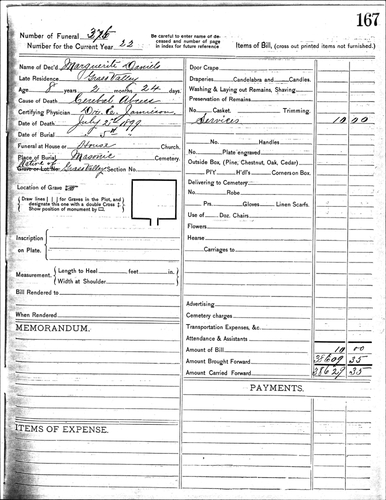 167
Number of Funeral 375
Number for the Current Year 22
Be carefully to enter name of deceased and number of page in index for future reference
Items of Bill, (cross out printed items not furnished.)
Name of Dec'd Marguerite Daniels
Late Residence Grass Valley
Age 8 years 2 months 24 days.
Cause of Death Cerebral Abcess
Certifying Physician Dr. C. Jamieson
Date of Death July 2nd 1899
Date of Burial " 5th "
Funeral at House or House Church.
Place of Burial Masonic Cemetery.
Native of
Grave or Lot No. Grass Valley Section No.
Location of Grave
Draw lines | | for Graves in the Plot, and designate this one with a double Cross
Show position of monument by
Inscription on Plate.
Measurement. Length to Heel feet in.
Width at Shoulder
Bill Rendered to
When Rendered
MEMORANDUM.
ITEMS OF EXPENSE.
Door Crape
Draperies Candelabra and Candles.
Washing & Laying out Remains, Shaving,
Preservation of Remains
Casket, Trimming.
Services 10 00
No. Handles
Plate engraved
Outside Box, (Pine, Chestnut, Oak, Cedar)
PIY H'dl's Corners on Box.
Delivering to Cemetery
No. Robe
Prs. Gloves Linen Scarfs.
Use of Doz. Chairs
Flowers
Hearse
Carriages to
Advertising
Cemetery charges
Transportation Expenses, &c.
Attendance & Assistants
Amount of Bill 10 00
Amount Brought Forward 38609 35
Amount Carried Forward 38629 35
PAYMENTS.